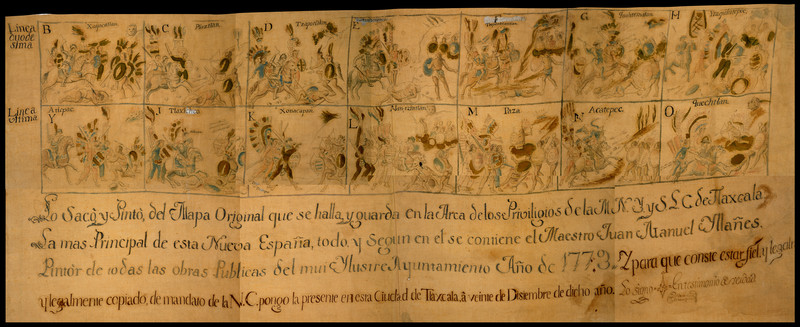 Linea
duode
sima.
B
C
D
E
G
H
Linea
ultima.
Y
J
K
L
M
N
O
Acatepec.
Lo Sacò, y Pintò, del Mapa Original que se halla, y guarda en la Arca de los Priviligios de la M. N. Y. y S. L. C. de Tlaxcala
La mas Principal de esta Nueva España, todo, y Segun en el se contiene el Maestro Juan Manuel Yllañes,
Pintor de todas las obras Publicas del mui Ylustre Ayuntamiento Año de 1773. Y para que conste estar fiel, y legal
y legalmente copiado, de mandato de la N. C. pongo la presente en esta Ciudad de Tlaxcala, â veinte de Disiembre de dicho año. Lo signo En testimonio de verdad